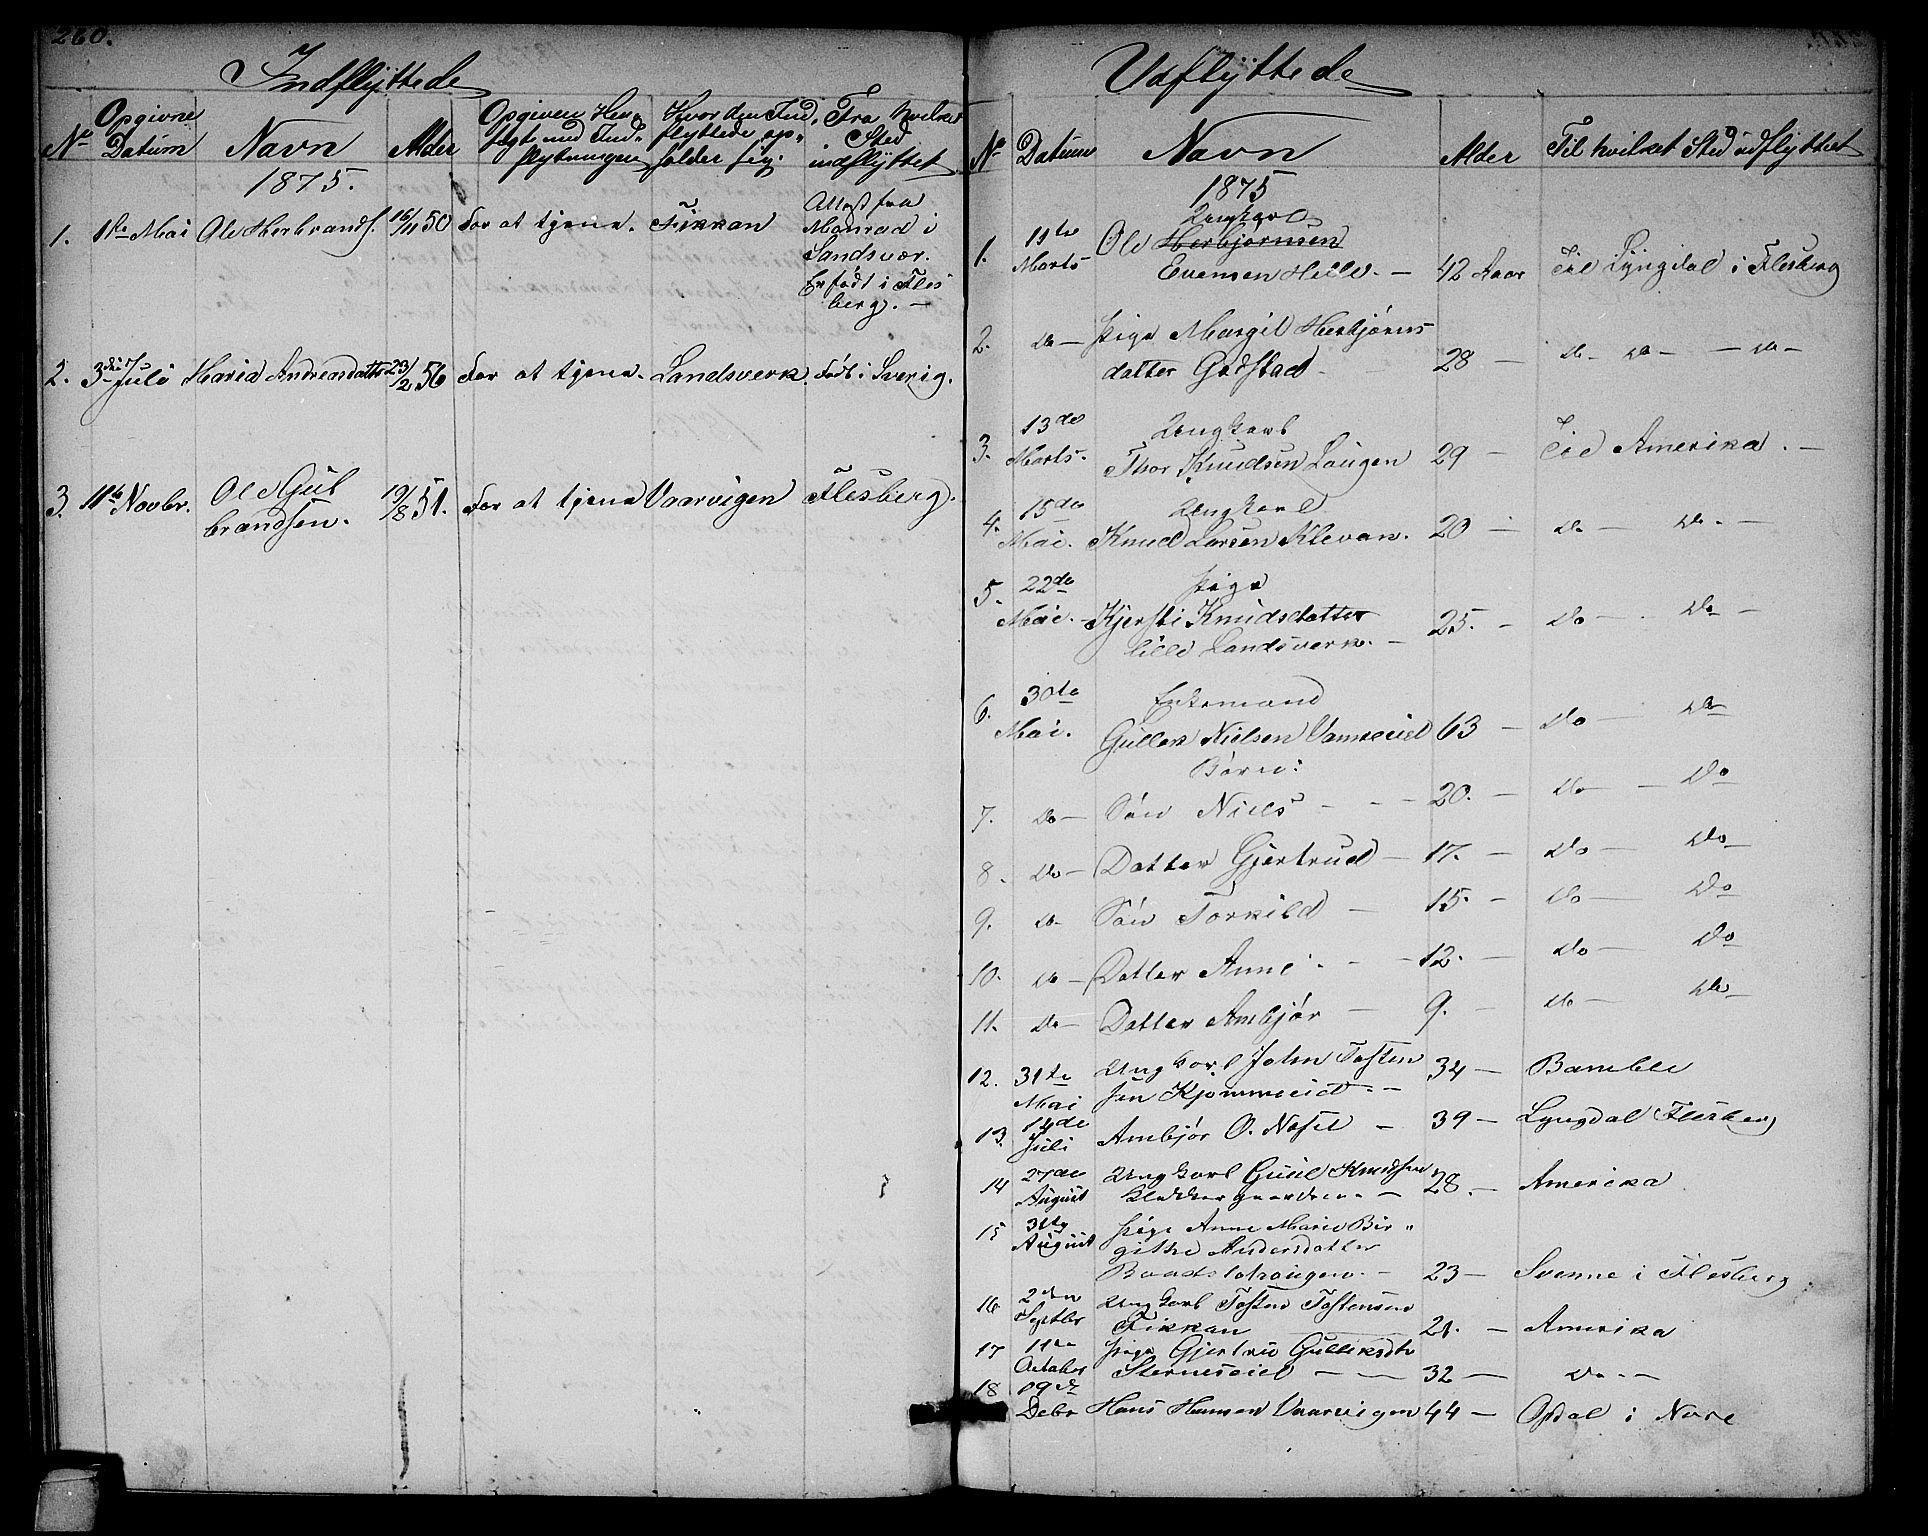 260.
Indflyttede
No
Opgivne Datum
Navn
Alder
Opgiven Hen-
sigt med Ind-
flytningen
Hvor den Ind-
flyttede op-
holder sig.
Fra hvilket
Sted
indflyttet
1875.
1. 1ste Mai Ole Herbrands. 16/11 50 For at tjene. Fikkan
Attest fra
Monrad i
Sandsvær.
Er født i Fles
berg. —
2. 3die Juli Maria Andreasdatter 23/2 56 For at tjene. Landsverk. Født i Sverig.
3. 11te Novbr. Ole Gul
brandsen. 19/8 51. For at tjene Vaarvigen Flesberg.
Udflyttede
No Datum Navn Alder Til hvilket Sted udflyttet
1875
1. 11te Marts Ungkarl
Ole Herbjørnsen
Evensen Helle. — 42 Aar Til Lyngdal i Flesberg
2. Do — Pige Margit Herbjørns
datter Godstad — 28 — Do — Do — — Do —
3. 13de Marts. Ungkarl
Thor Knudsen Laugen 29 — Til Amerika. —
4. 15de Mai. Ungkarl
Knud Larsen Kleven. 20 — Do — Do. —
5. 22de Mai. Pige
Kjersti Knudsdatter
lille Landsverk. — 25. — Do — Do —
6. 30te Mai. Enkemand
Gullek Nielsen Vanneeiet 63 — Do — Do
Børn:
7. Do — Søn Niels — — — 20. — Do — — Do
8. Do — Datter Gjertrud — 17. — Do — Do
9. Do Søn Torkild — 15. — Do — Do
10. Do — Datter Anne — — 12. — Do — Do
11. Do — Datter Ambjør — 9. — Do — Do
12. 31te Mai Ungkarl John Tosten
sen Kjømmeeid — — 34 — Bamble
13. 14de Juli Ambjør O. — 39 — Lyngdal Flesberg
14 27de August Ungkarl Knudsen
Klokkergaarden. — 28. — Amerika
15 31te August Pige Anne Marie Bir-
githe Andersdatter
— 23 — Svenne i Flesberg
16. 2den Septbr Ungkarl Tosten Tostensen
Fikkan — 21. — Amerika
17 11te October Pige Gjertru Gulleksdtr
— — 32 — Do. — —
18 19de Debr Hans Hansen Vaarvigen 44 — Opdal i Nore